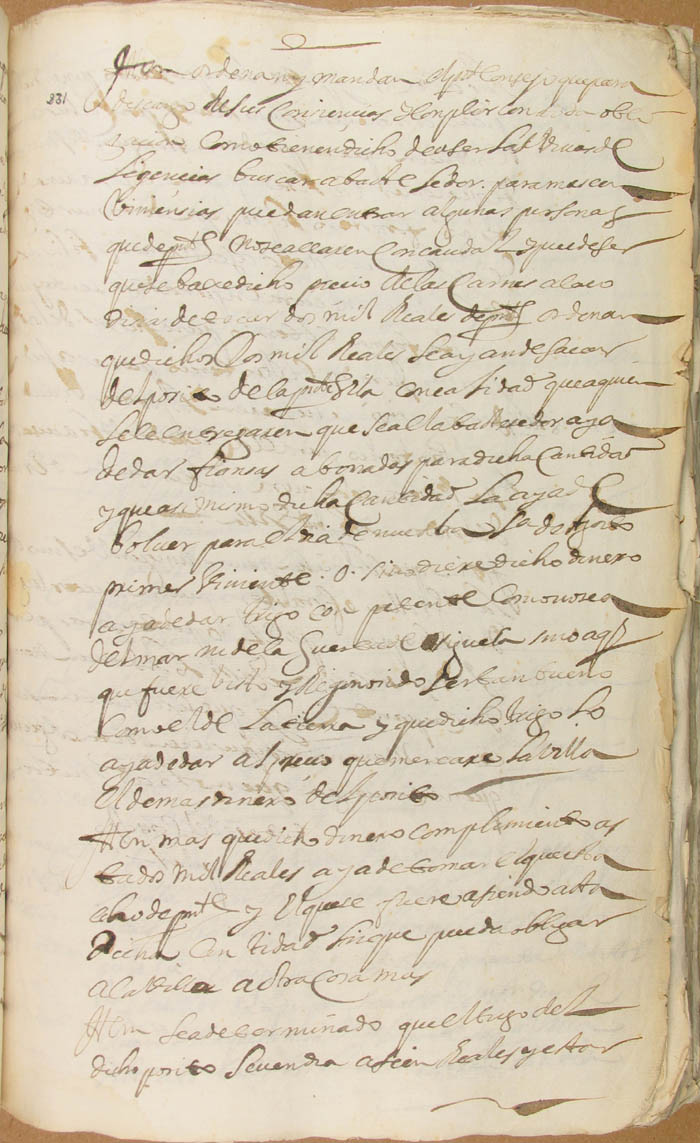 331
Itten ordenan y mandan el pnte Consejo que para
descargo de sus Conciencias y Conplir con
Como tienen dicho de aser las dilix
ligencias buscar abastesedor. para mas con
biniensias puedan entrar algunas personas
que de pnte no se allaren Con caudal y puede ser
que se baxe dicho precio de las Carnes
de dos mil Reales de pnte ordenan
que dichos Dos mil Reales se ayan de sacar
del posito de la pnte Villa con calidad que a quien
se le entregaren que sea el abastesedor aya
de dar fiansas abonadas para dicha Cantidad
y que asi mismo dicha Cantidad la aya de
bolver para el dia de nuestra Sa de Agosto
primer Viniente. o. si no diere dicho dinero
aya de dar trigo Como no sea
del mar ni de la Guerta de sino
que fuere bisto y Reconosido ser tan bueno
Como el de la tierra y que dicho trigo lo
aya de dar al precio que mercare la Villa
El demas dinero del posito
Itten mas que dicho dinero complimiento as
ta dos Mil Reales aya de tomar el que esta
año de pnte y El que se fuere asiendo asta
dicha Cantidad sin que pueda obligar
a la Villa a otra Cosa mas
Itten sea determinado que el trigo del
dicho posito se vendra a sien Reales y estar